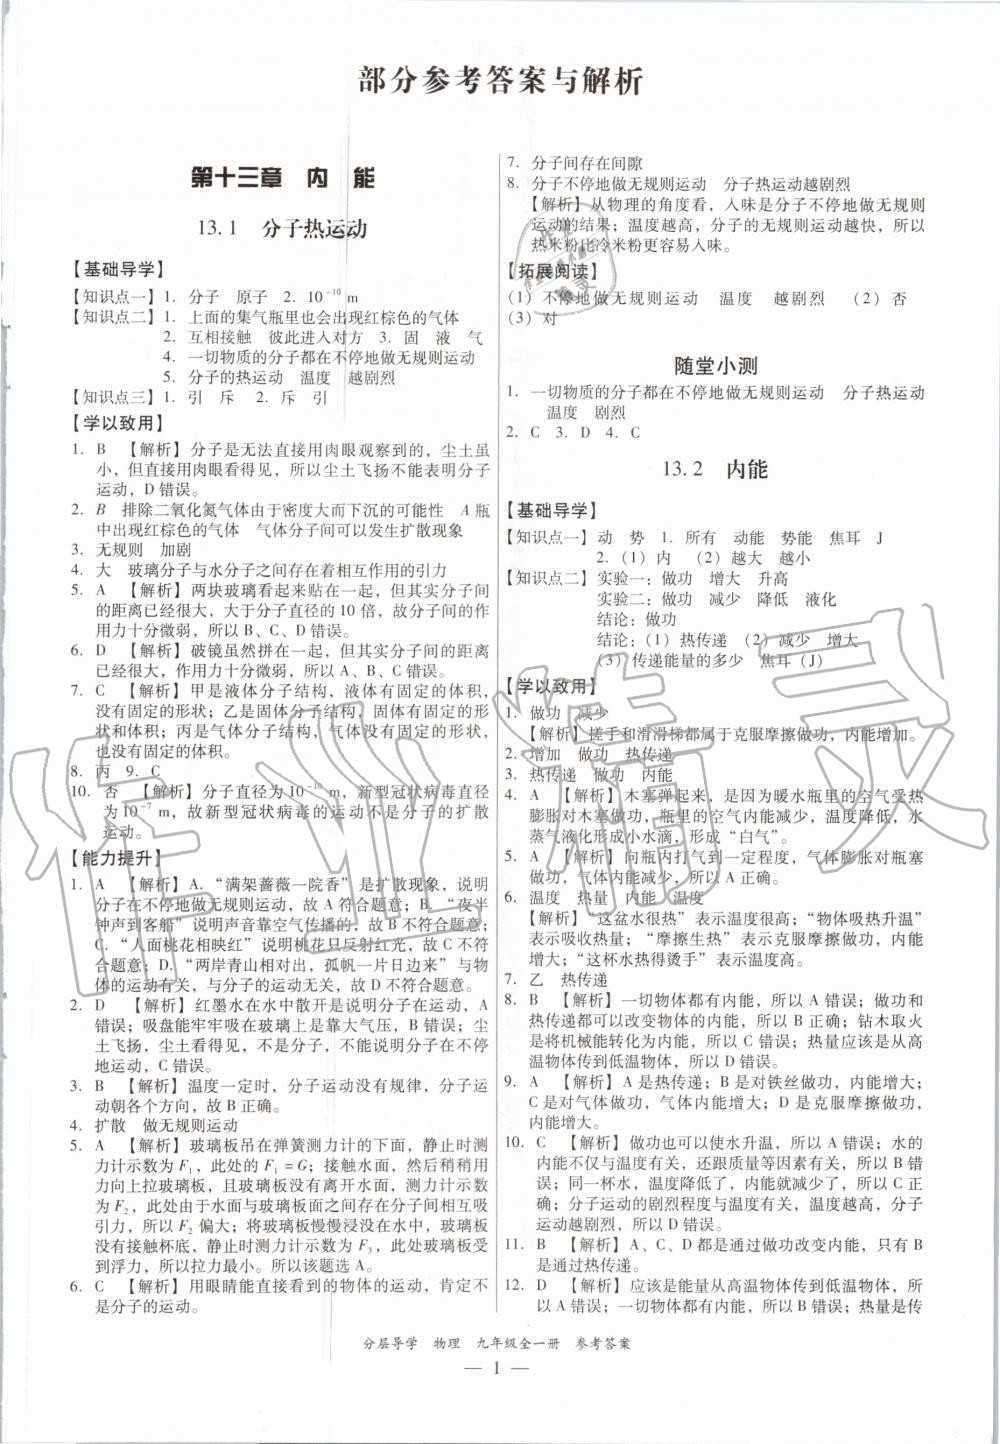 部分参考答案与解析
第十三章 内 能
13.1 分子热运动
【基础导学】
【知识点一】1. 分子 原子 2. 10⁻¹⁰ m
【知识点二】1. 上面的集气瓶里也会出现红棕色的气体
2. 互相接触 彼此进入对方 3. 固 液 气
4. 一切物质的分子都在不停地做无规则运动
5. 分子的热运动 温度 越剧烈
【知识点三】1. 引 斥 2. 斥 引
【学以致用】
1. B 【解析】分子是无法直接用肉眼观察到的,尘土虽
小,但直接用肉眼看得见,所以尘土飞扬不能表明分子
运动,D 错误。
2. B 排除二氧化氮气体由于密度大而下沉的可能性 A 瓶
中出现红棕色的气体 气体分子间可以发生扩散现象
3. 无规则 加剧
4. 大 玻璃分子与水分子之间存在着相互作用的引力
5. A 【解析】两块玻璃看起来贴在一起,但其实分子间
的距离已经很大,大于分子直径的 10 倍,故分子间的作
用力十分微弱,所以 B、C、D 错误。
6. D 【解析】破镜虽然拼在一起,但其实分子间的距离
已经很大,作用力十分微弱,所以 A、B、C 错误。
7. C 【解析】甲是液体分子结构,液体有固定的体积,
没有固定的形状;乙是固体分子结构,固体有固定的形
状和体积;丙是气体分子结构,气体没有固定的形状,
也没有固定的体积。
8. 丙 9. C
10. 否 【解析】分子直径为 10⁻¹⁰ m,新型冠状病毒直径
为 10⁻⁷ m,故新型冠状病毒的运动不是分子的扩散
运动。
【能力提升】
1. A 【解析】A.“满架蔷薇一院香”是扩散现象,说明
分子在不停地做无规则运动,故 A 符合题意;B.“夜半
钟声到客船”说明声音靠空气传播的,故 B 不符合题意;
C.“人面桃花相映红”说明桃花只反射红光,故 C 不符
合题意;D.“两岸青山相对出,孤帆一片日边来”与物
体的运动有关,与分子的运动无关,故 D 不符合题意。
2. D 【解析】红墨水在水中散开是说明分子在运动,A
错误;吸盘能牢牢吸在玻璃上是靠大气压,B 错误;尘
土飞扬,尘土是小颗粒,不是分子,不能说明分子在不停
地运动,C 错误。
3. B 【解析】温度一定时,分子运动没有规律,分子运
动朝各个方向,故 B 正确。
4. 扩散 做无规则运动
5. A 【解析】玻璃板吊在弹簧测力计的下面,静止时测
力计示数为 F₁,此处的 F₁=G;接触水面,然后稍稍用
力向上拉玻璃板,且玻璃板没有离开水面,测力计示数
为 F₂,此处由于水面与玻璃板面之间存在分子间相互吸
引力,所以 F₂ 偏大;将玻璃板慢慢浸没在水中,玻璃板
没有接触杯底,静止时测力计示数为 F₃,此处玻璃板受
到浮力,所以拉力最小。所以该题选 A。
6. C 【解析】用眼睛能直接看到的物体的运动,肯定不
是分子的运动。
7. 分子间存在间隙
8. 分子不停地做无规则运动 分子热运动越剧烈
【解析】从物理的角度看,入味是分子不停地做无规则
运动的结果;温度越高,分子的无规则运动越快,所以
热米粉比冷米粉更容易入味。
【拓展阅读】
(1) 不停地做无规则运动 温度 越剧烈 (2) 否
(3) 对
随堂小测
1. 一切物质的分子都在不停地做无规则运动 分子热运动
温度 剧烈
2. C 3. D 4. C
13.2 内能
【基础导学】
【知识点一】动 势 1. 所有 动能 势能 焦耳 J
2. (1) 内 (2) 越大 越小
【知识点二】实验一:做功 增大 升高
实验二:做功 减少 降低 液化
结论:做功
结论:(1) 热传递 (2) 减少 增大
(3) 传递能量的多少 焦耳 (J)
【学以致用】
1. 做功 减少
【解析】搓手和滑滑梯都属于克服摩擦做功,内能增加。
2. 增加 做功 热传递
3. 热传递 做功 内能
4. A 【解析】木塞弹起来,是因为暖水瓶里的空气受热
膨胀对木塞做功,瓶里的空气内能减少,温度降低,水
蒸气液化形成小水滴,形成“白气”。
5. A 【解析】向瓶内打气到一定程度,气体膨胀对瓶塞
做功,内能减少,所以 A 正确。
6. 温度 热量 内能 温度
【解析】“这盆水很热”表示温度很高;“物体吸热升温”
表示吸收热量;“摩擦生热”表示克服摩擦做功,内能增
大;“这杯水热得烫手”表示温度高。
7. 乙 热传递
8. B 【解析】一切物体都有内能,所以 A 错误;做功和
热传递都可以改变物体的内能,所以 B 正确;钻木取火
是将机械能转化为内能,所以 C 错误;热量应该是从高
温物体传到低温物体,所以 D 错误。
9. A 【解析】A 是热传递;B 是对铁丝做功,内能增大;
C 是对气体做功,气体内能增大;D 是克服摩擦做功,内
能增大。
10. C 【解析】做功也可以使水升温,所以 A 错误;水的
内能不仅与温度有关,还跟质量等因素有关,所以 B 错
误;同一杯水,温度降低了,内能就减少了,所以 C 正
确;分子运动的剧烈程度与温度有关,温度越高,分子
运动越剧烈,所以 D 错误。
11. B 【解析】A、C、D 都是通过做功改变内能,只有 B
是通过热传递。
12. D 【解析】应该是能量从高温物体传到低温物体,所
以 A 错误;一切物体都有内能,所以 B 错误;热量是传
分层导学 物理 九年级全一册 参考答案
— 1 —
作业精灵